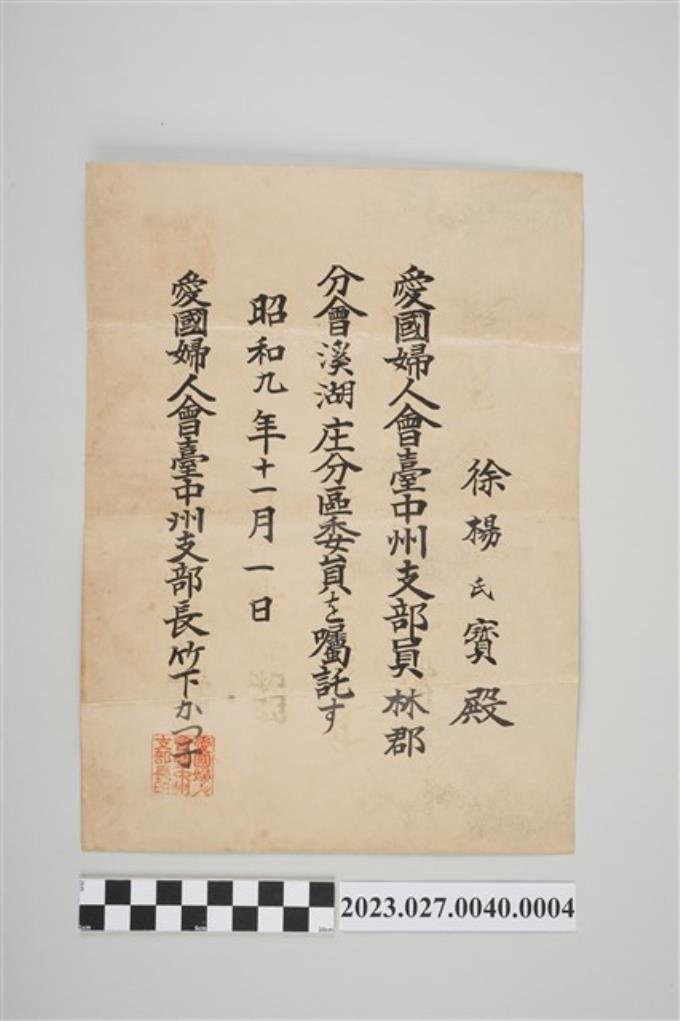 徐楊氏寶殿
愛國婦人會臺中州支部員林郡
分會溪湖庄分區委員を囑託す
昭和九年十一月一日
愛國婦人會臺中州支部長竹下かつ子
愛國婦人
會臺中州
支部長印
2023.027.0040.0004